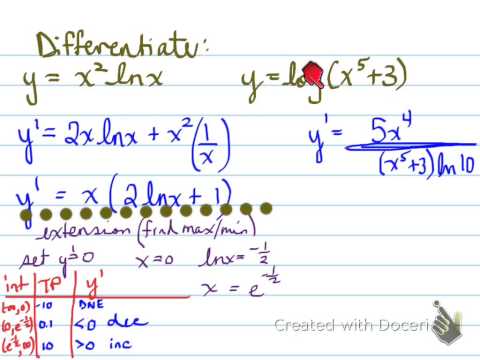 Differentiate:
y = x² ln x
y = log (x⁵+3)
y' = 2x ln x + x² (1/x)
y' = 5x⁴ / (x⁵+3) ln 10
y' = x (2 ln x + 1)
extension (find max/min)
set y'=0 x=0 ln x = -1/2
x = e^(-1/2)
int TP y'
(-∞,0) -10 DNE
(0,e^(-1/2)) 0.1 <0 dec
(e^(-1/2),∞) 10 >0 inc
Created with Doceri